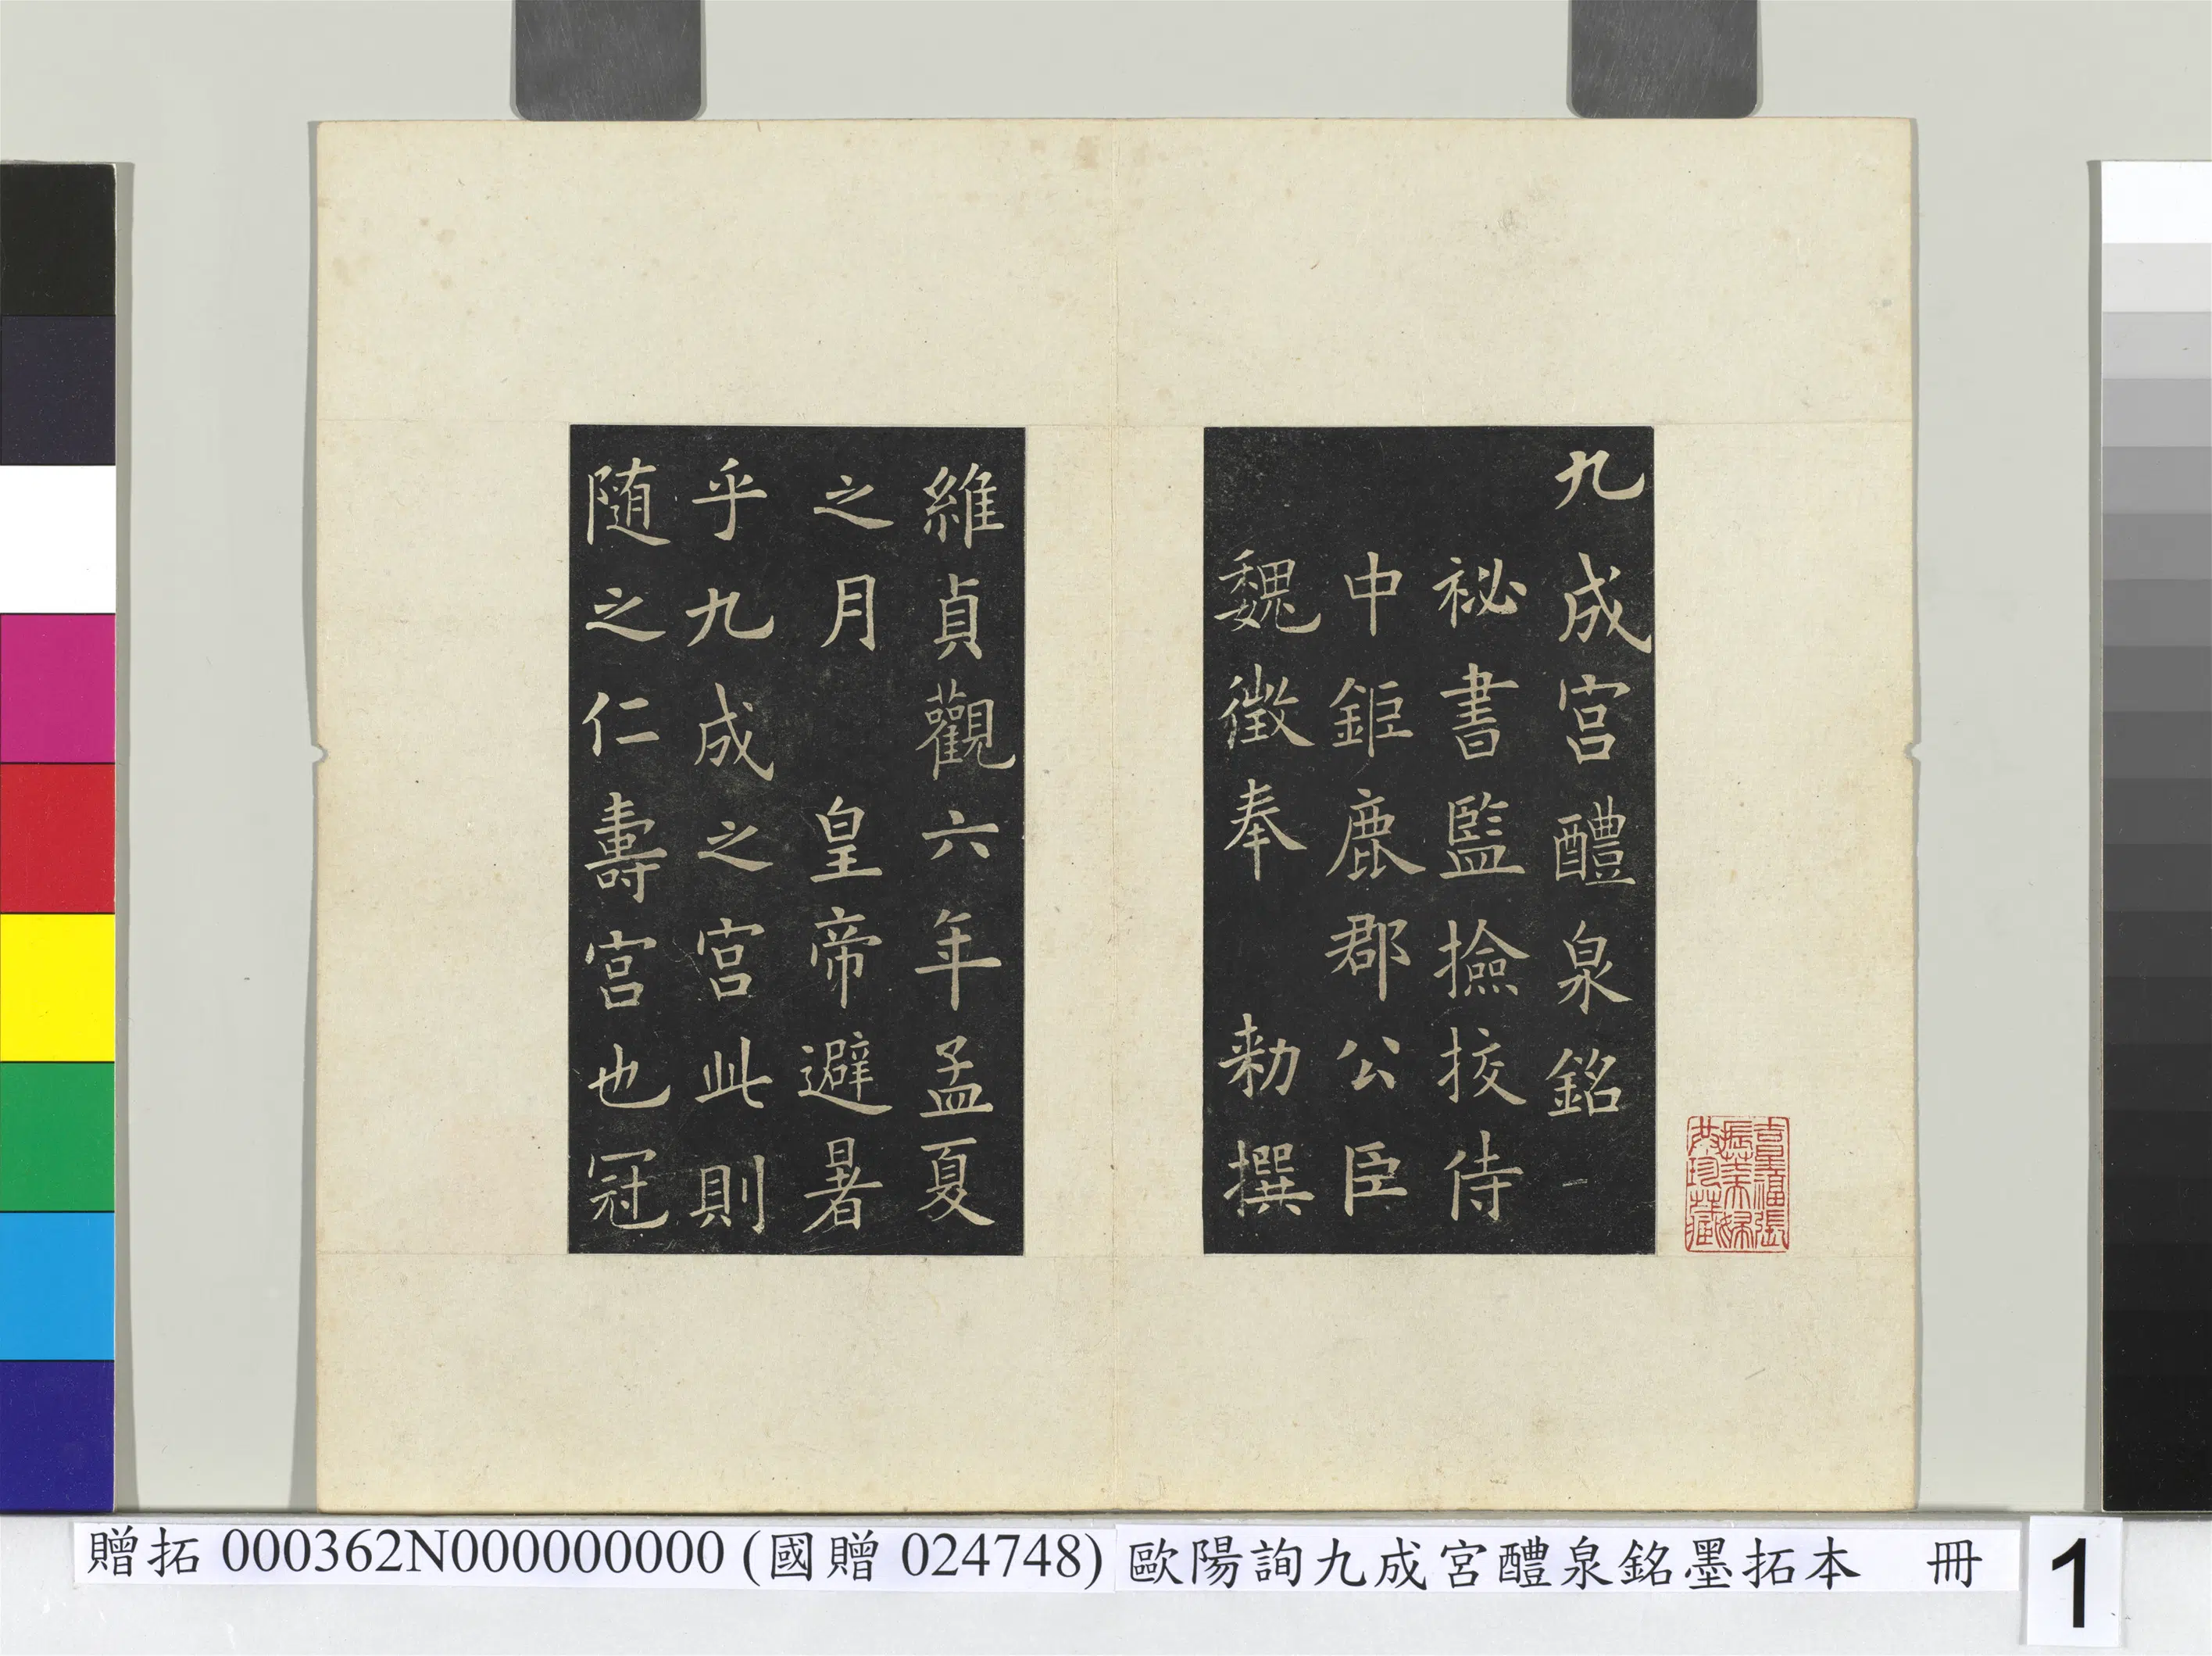 九成宮醴泉銘
祕書監撿挍侍
中鉅鹿郡公臣
魏徵奉 勑撰
維貞觀六年孟夏
之月 皇帝避暑
乎九成之宮此則
随之仁壽宮也冠
贈拓 000362N000000000 (國贈 024748) 歐陽詢九成宮醴泉銘墨拓本 冊
1